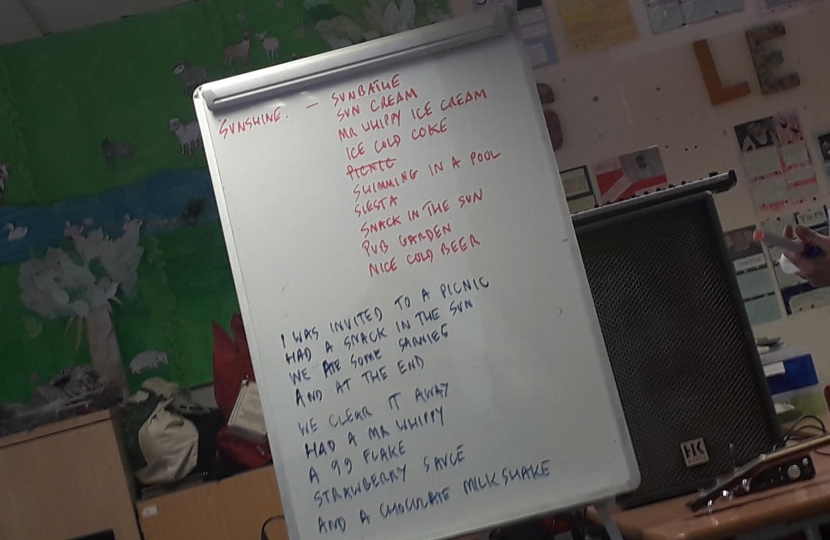 SUNSHINE. — SUNBATHE
SUN CREAM
MR WHIPPY ICE CREAM
ICE COLD COKE
PICNIC
SWIMMING IN A POOL
SIESTA
SNACK IN THE SUN
PUB GARDEN
NICE COLD BEER
I WAS INVITED TO A PICNIC
HAD A SNACK IN THE SUN
WE ATE SOME SARNIES
AND AT THE END
WE CLEAR IT AWAY
HAD A MR WHIPPY
A 99 FLAKE
STRAWBERRY SAUCE
AND A CHOCOLATE MILKSHAKE
LE
HK